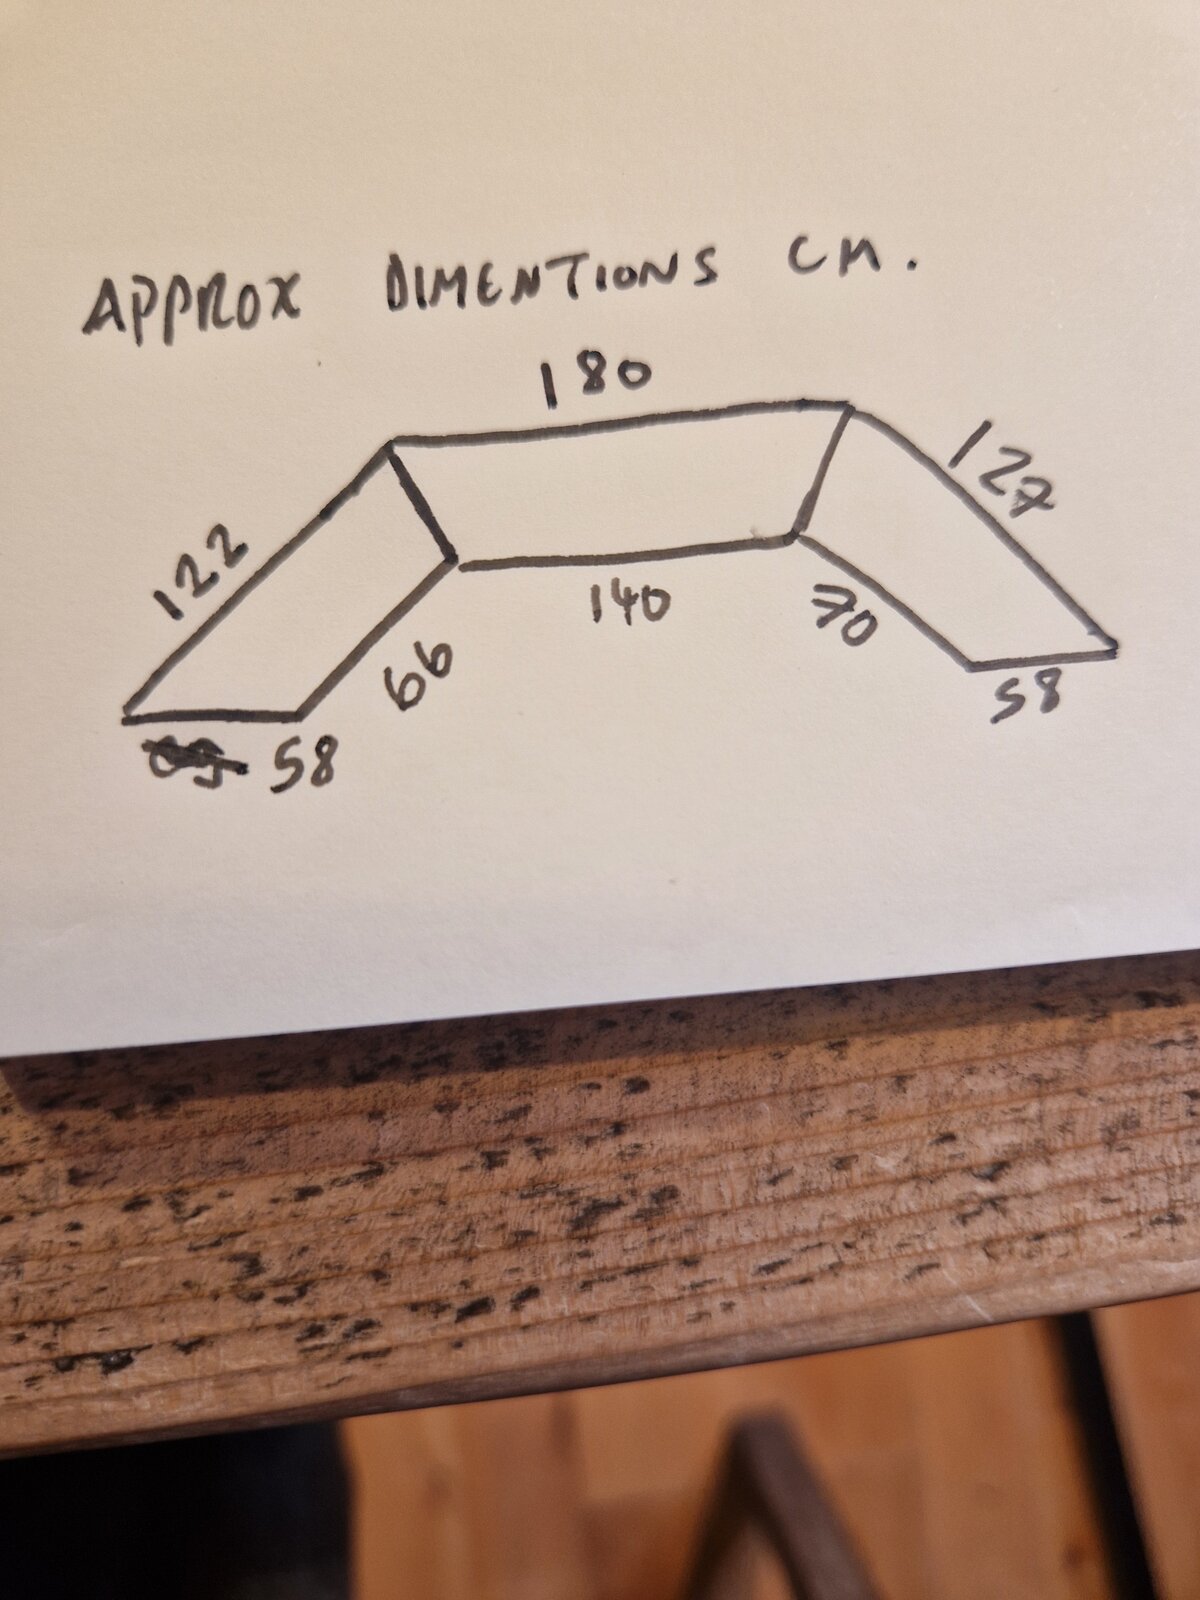 APPROX DIMENTIONS CM.
180
122
127
140
66
70
58
58